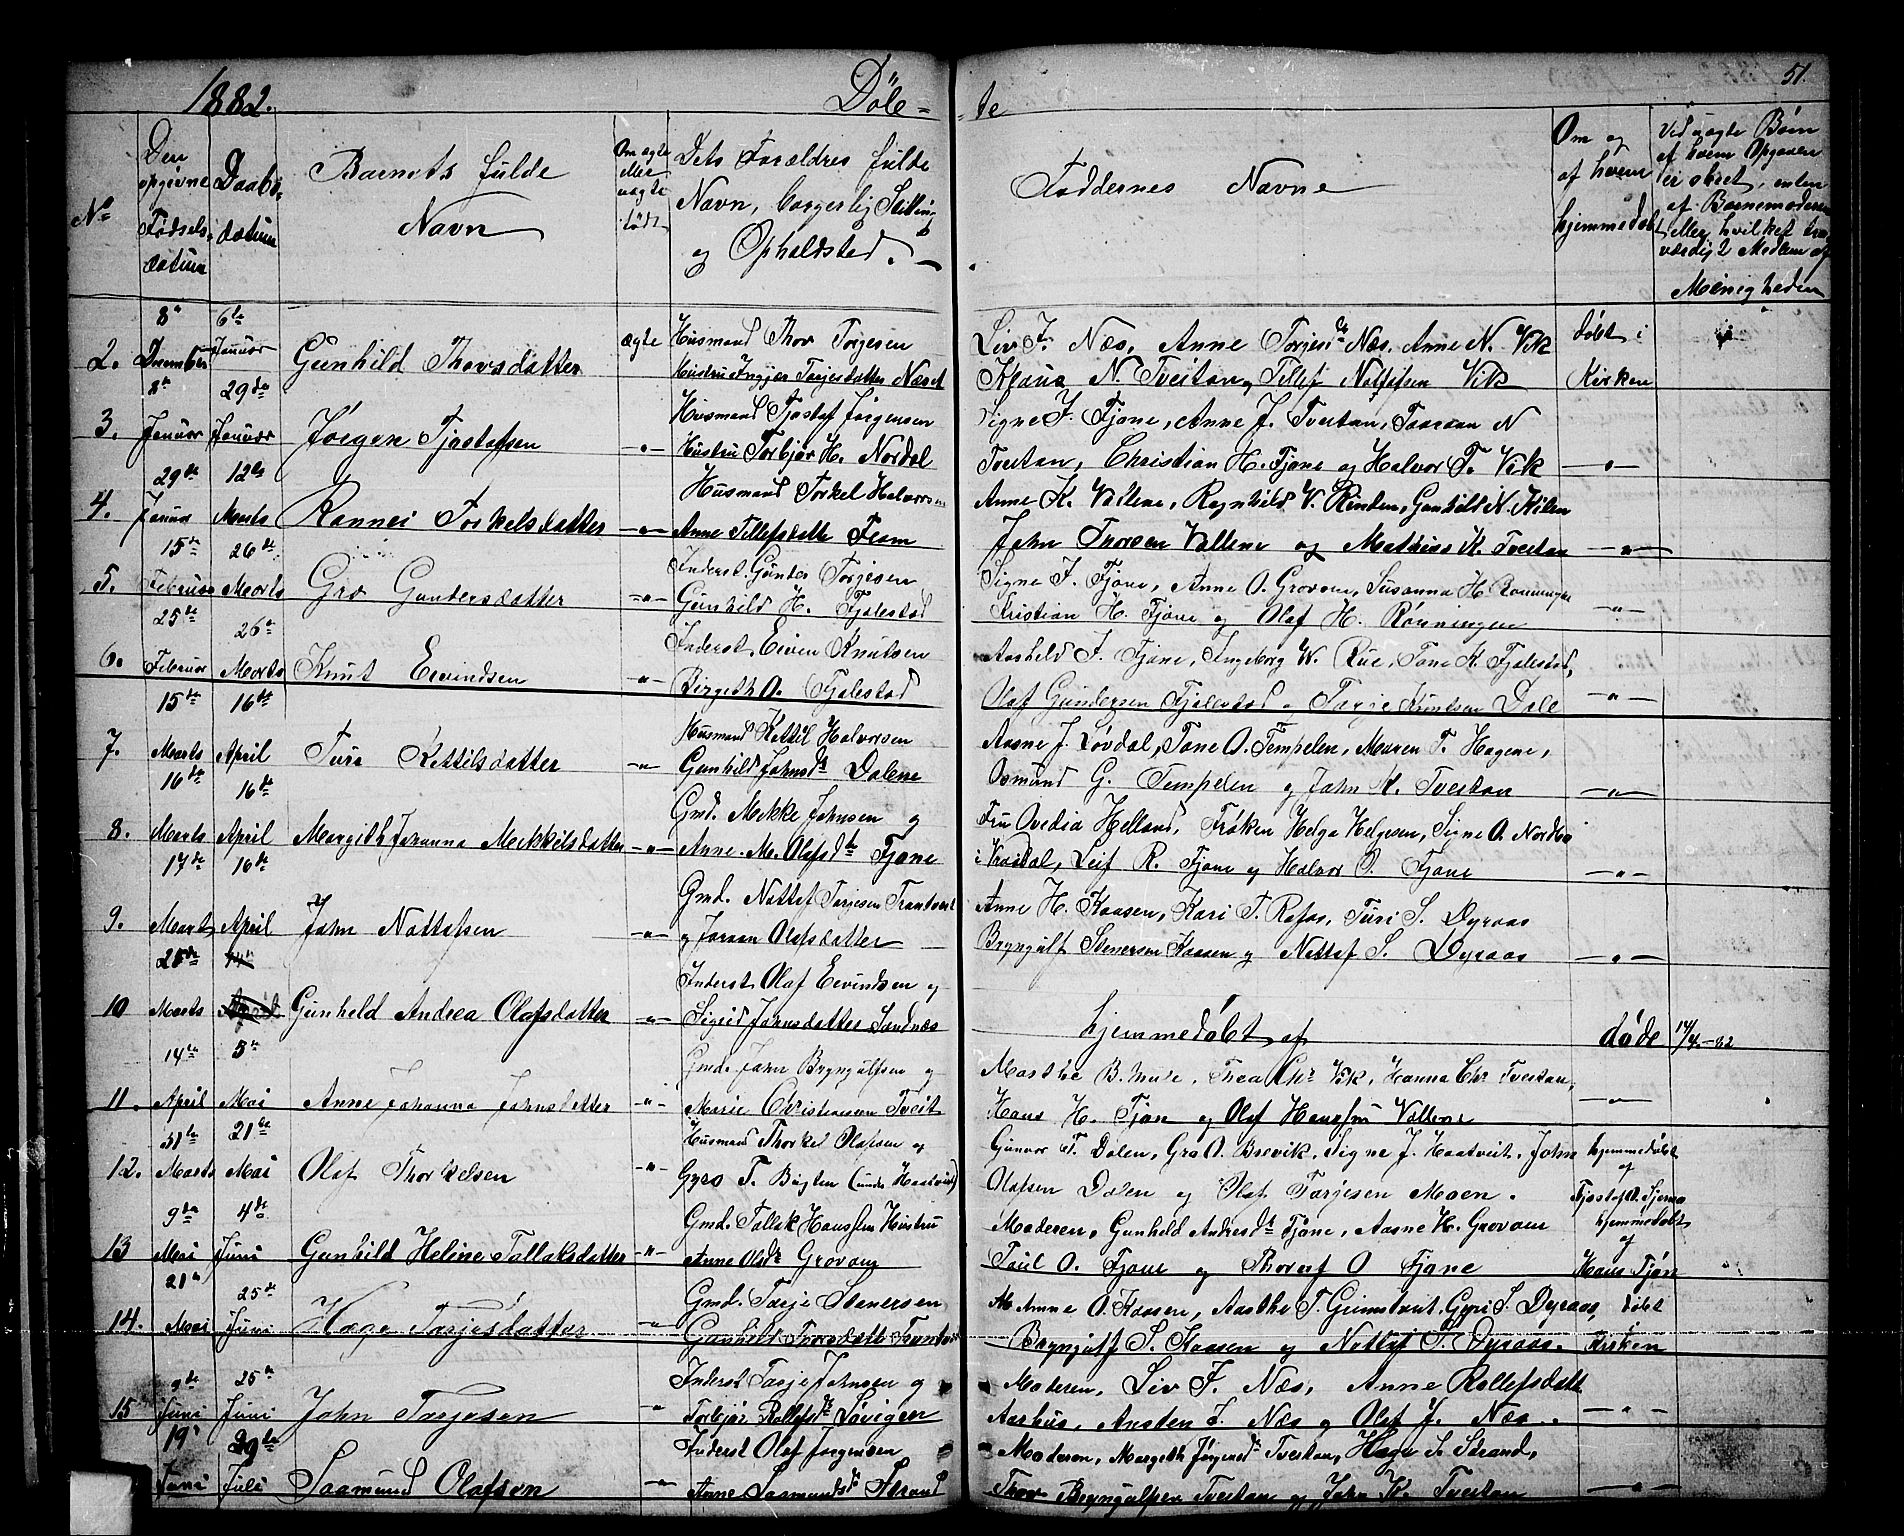 1882. Døb= =te 51.
No
Den opgivne Fødsels-datum
Daabs-datum
Barnets fulde Navn
Om ægte eller uægte født
Dets Forældres fulde Navn, borgerlig Stilling og Opholdsted.
Faddernes Navne
Om og af hvem hjemmedøbt
Ved uægte Børn af hvem Opgaven er skeet, enten af Barnemoderen eller hvilket troværdigt Medlem af Menigheden
8de 6te
2. December Januar Gunhild Thorsdatter ægte Husmand Thor Torjesen
Hustru Ingjær Tarjesdatter Næset
Liv F. Næs, Anne Torjesdtr Næs, Anne N. Vik døbt i
Klaus N. Tveitan, Tellef Nottolfsen Vik Kirken
8de 29de
3. Januar Januar Jørgen Tjøstofsen -"- Husmand Tjøstof Jørgensen
Hustru Torbjør H. Nordal
Signe J. Fjone, Anne J. Tveitan, Taaraan N
Tveitan, Christian H. Fjone og Halvor T. Vik -"-
29de 12te
4. Januar Marts Rannei Torkelsdatter -"- Husmand Torkel Halvorsen
Anne Tellefsdatter Fram
Anne K. Vallene, Ragnhild V. Rinden, Gunhild N. Kilen
John Thorsen Vallene og Mathias K. Tveitan -"-
15de 26de
5. Februar Marts Gro Gundersdatter -"- Inderst Gunder Torjesen
Gunhild H. Fjalestad
Signe J. Fjone, Anne O. Grovom, Susanna H. Rønningen
Kristian H. Fjone og Olaf H. Rønningen -"-
25de 26de
6. Februar Marts Knut Eivindsen -"- Inderst Eiven Knutsen
Birgith O. Fjalestad
Aashild J. Fjone, Ingeborg W. Rue, Tone K. Fjalestad,
Olaf Gundersen Fjalestad, Tarje Knutsen Dale -"-
15de 16de
7. Marts April Turi Kettilsdatter -"- Husmand Kettil Halvorsen
Gunhild Johnsdtr Dalene
Aasne J. Løvdal, Tone O. Tempelen, Maren T. Hagene,
Osmund G. Tempelen og John K. Tveitan -"-
16de 16de
8. Marts April Margith Johanna Mekkilsdatter -"- Gmd. Mekke Johnsen og
Anne M. Olafsdtr Fjone
Fru Ovedia Helland, Frøken Helga Helgesen, Signe O. Nordbø
i Kroédal, Leif R. Fjone og Halvor O. Fjone -"-
17de 16de
9. Marts April John Nottolfsen -"- Gmd. Nottof Tarjesen Trontveit
og Joraan Olafsdatter
Anne H. Kaasen, Kari T. Rafos, Turi S. Dyraas
Bryngulf Stenersen Kaasen og Nottof S. Dyraas -"-
28de
10 Marts April Gunhild Andrea Olafsdatter -"- Inderst Olaf Eivindsen og
Sigrid Johnsdatter Sandnæs
hjemmedøbt af døde 14/4-82
14de 5te
11. April Mai Anne Johanna Johnsdatter -"- Gmd. John Bryngulfsen og
Marie Christiansen Tveit
Marthe B. Mure, Thea Chr Vik, Hanna Chr Tveitan,
Hans H. Fjone og Olaf Hanssen Vallene -"-
31te 21de
12. Marts Mai Olaf Thorkelsen -"- Husmand Thorkel Olafsen og
Gyro T. Bugten (under Haatveit)
Gunvor T. Dalen, Gro O. Brevik, Signe J. Haatveit, John hjemmedøbt af
Olafsen Dalen og Olaf Tarjesen Moen.
9de 4de
13 Mai Juni Gunhild Helene Tallaksdatter -"- Gmd. Tallak Hanssen Hustru
Anne Olsdtr Grovom
Moderen, Gunhild Andresdtr Fjone, Aasne H. Grovom hjemmedøbt af
Paul O. Fjone og Thorulf O Fjone Hans Fjone
21de 25de
14. Mai Juni Hæge Tarjesdatter -"- Gmd. Tarje Stenersen
Gunhild Thorsdatter Trontveit
M. Anne O. Kaasen, Aasthe T. Grimstveit, Gyri S. Dyraas, døbt
Bryngulf S. Kaasen og Nottof S. Dyraas. Kirken
9de 25de
15 Juni Juni John Tarjesen -"- Inderst Tarje Johnsen og
Torbjør Rollefsdtr Løvigen
Moderen, Liv F. Næs, Anne Rollefsdatt
Aarhus, Austen J. Næs og Olaf J. Næs. -"-
19de 29de
Juni Juli Saamund Olafsen -"- Inderst Olaf Jørgensen
Anne Saamundsdtr Strand
Moderen, Margeth Jørgensdtr Tveitan, Hæge S. Strand,
Thor Bryngulfsen Tveitan og John K. Tveitan -"-